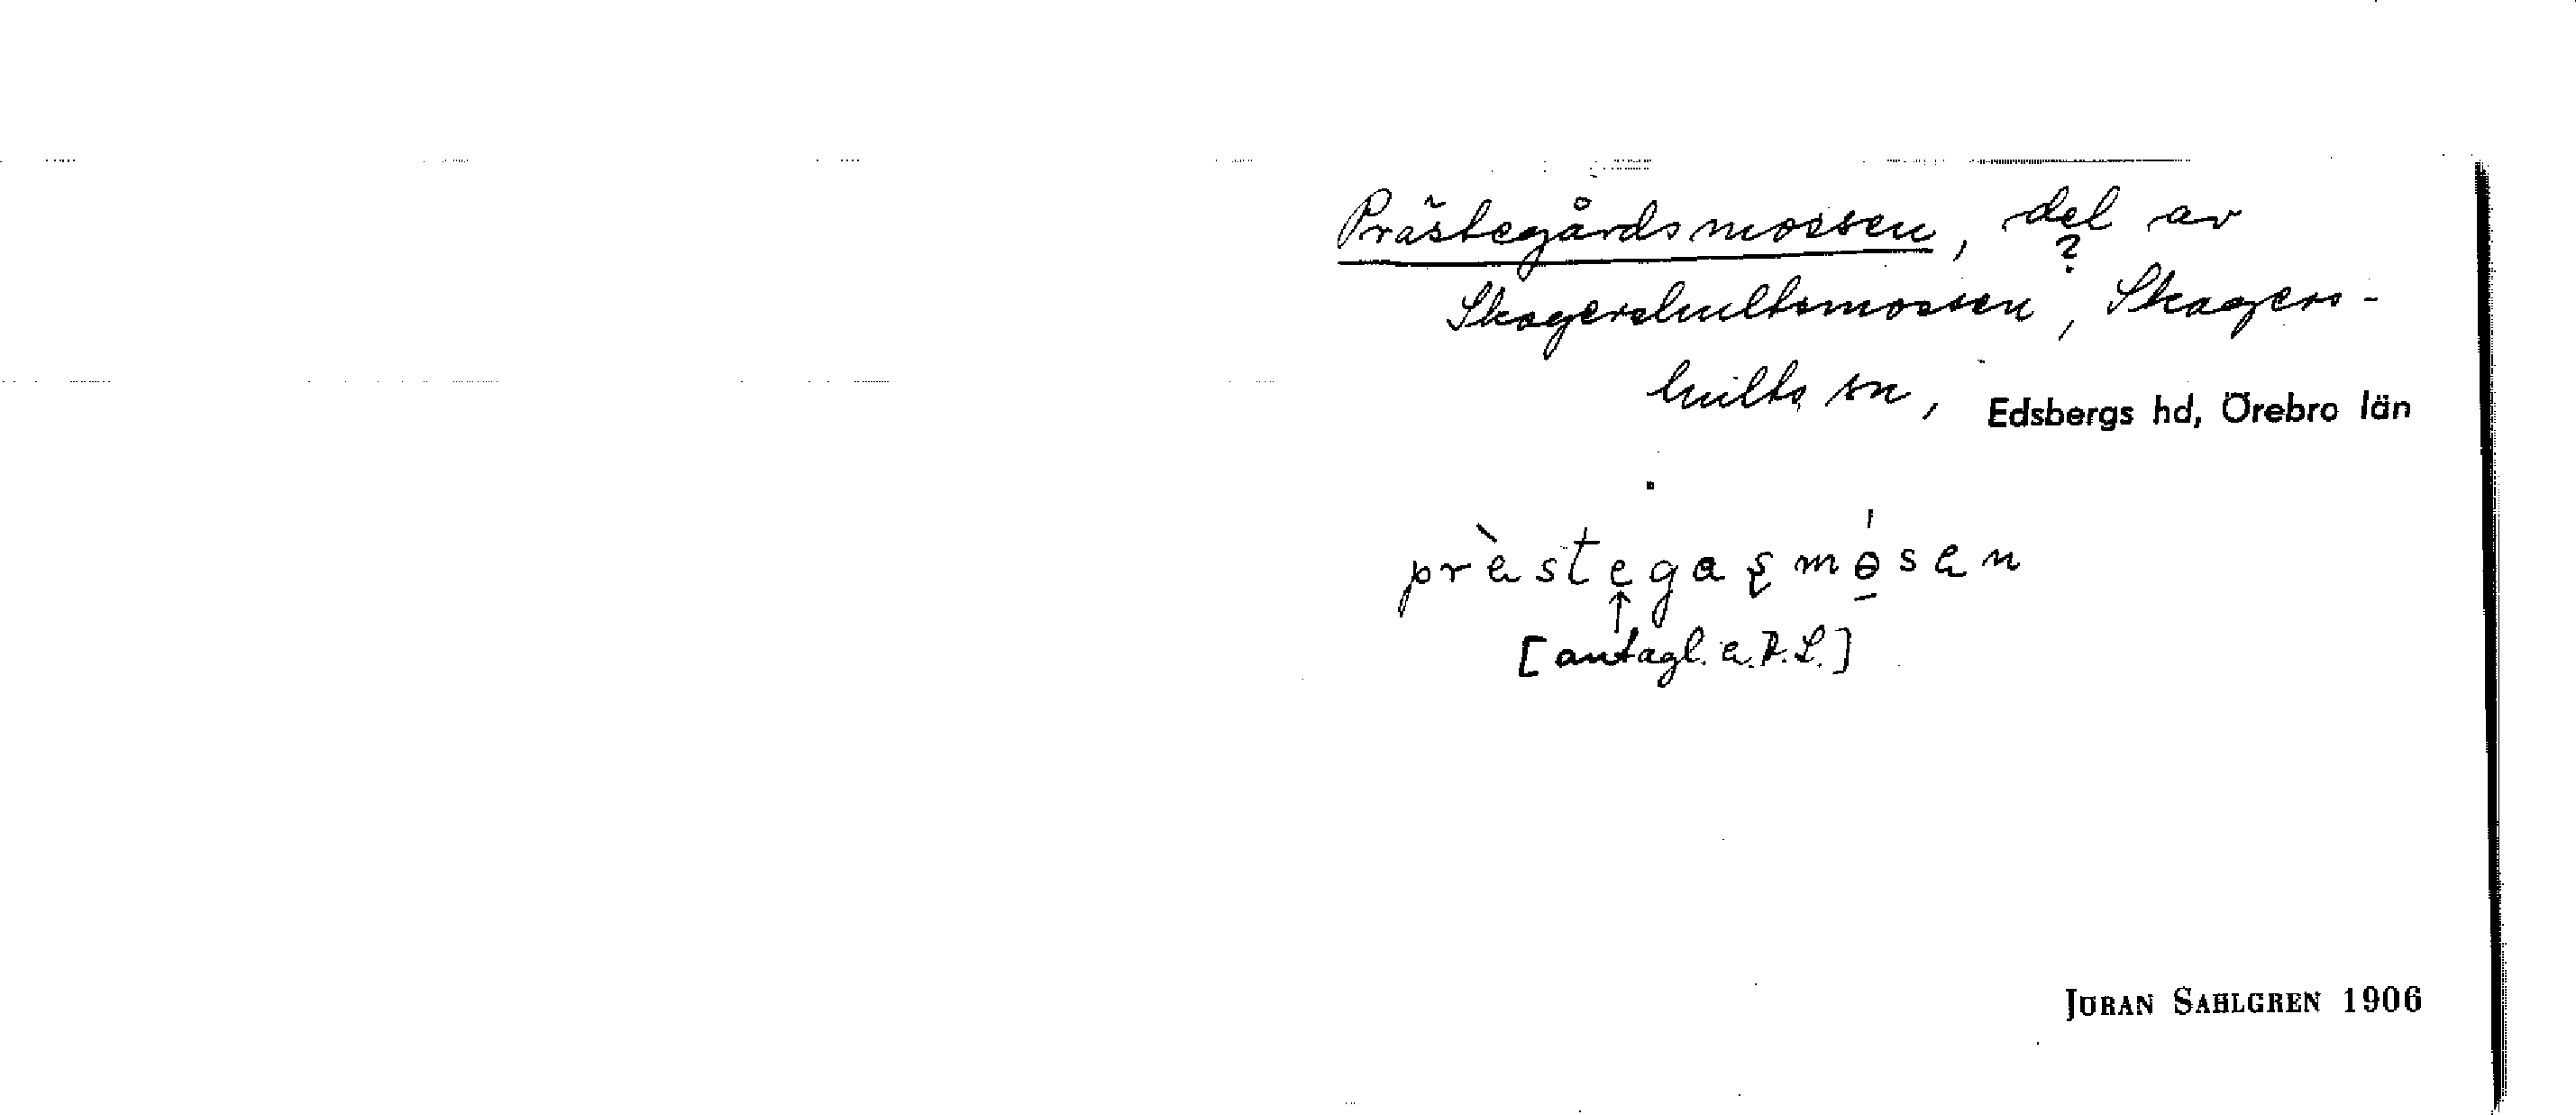 Prästegårdsmossen, del av
?
Skagershultsmossen, Skagers-
hults sn, Edsbergs hd, Örebro län
prästegaʂmósen
↑
[antagl. e. P.L.]
JÖRAN SAHLGREN 1906